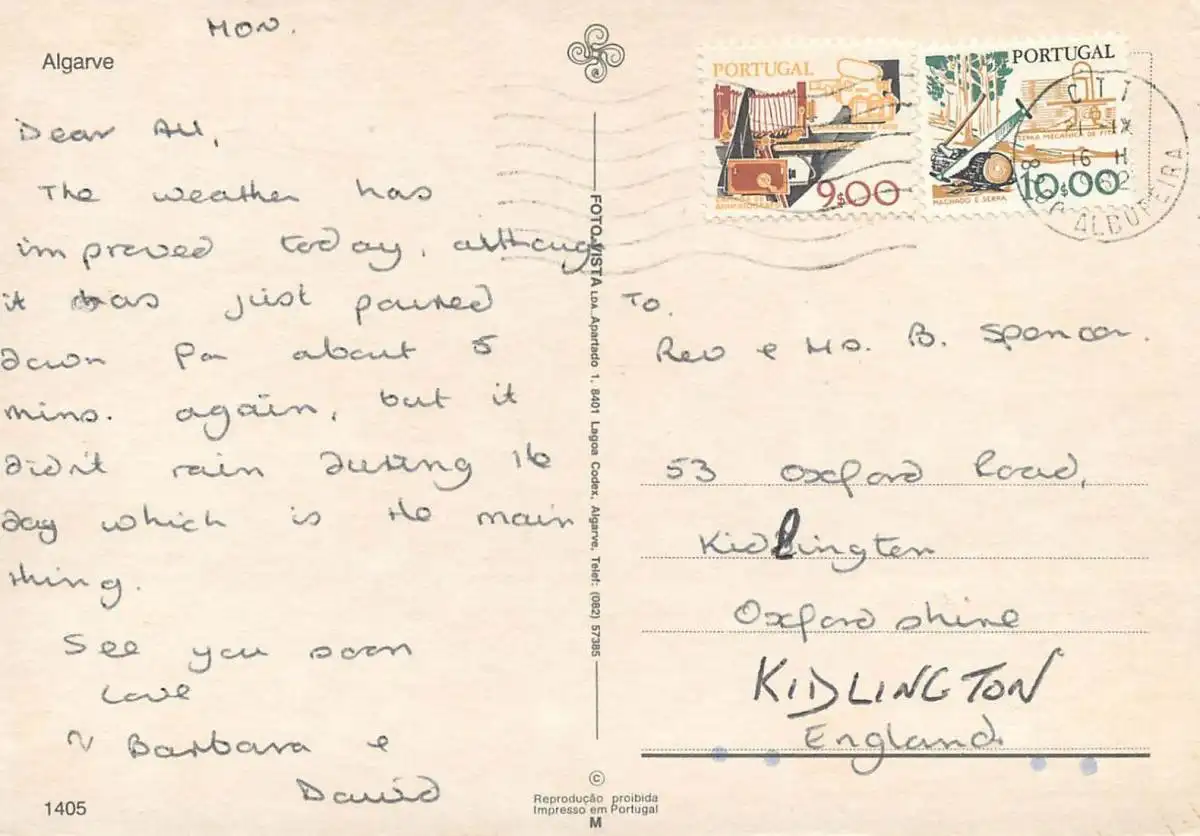 MON.
Algarve
Dear All,
The weather has
improved today, although
it has just poured
down for about 5
mins. again, but it
didn't rain during the
day which is the main
thing.
See you soon
Love
Barbara e
David
1405
FOTO-VISTA LDA. Apartado 1. 8401 Lagoa Codex, Algarve, Telef: (082) 57385
©
Reprodução proibida
Impresso em Portugal
M
PORTUGAL
9$00
PORTUGAL
SERRA MECÂNICA DE FITA
MACHADO E SERRA
10$00
CTT
IX
16 H
ALBUFEIRA
TO.
Rev e Ms. B. Spencer.
53 Oxford Road,
Kidlington
Oxfordshire
KIDLINGTON
England.